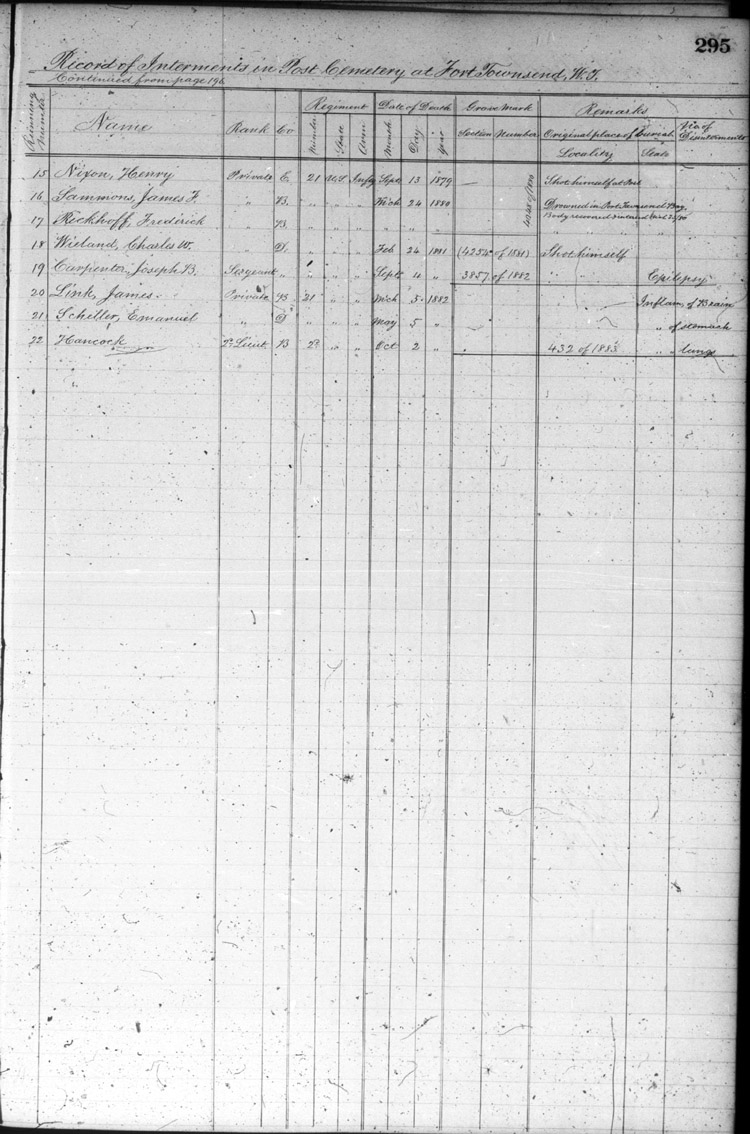 295
Record of Interments in Post Cemetery at Fort Townsend, W.T.
Continued from page 196
Running Number Name Rank Co Regiment Date of Death Grave Mark Remarks No of Disinterments
Number State Arm Month Day Year Section Number Original place of Burial
Locality State
15 Nixon, Henry Private E. 21 U.S. Infy Sept 13 1879 — Shot himself at Post
16 Sammons, James F. " B. " " " Mch 24 1880 Drowned in Port Townsend Bay,
17 Rickhoff, Fredrick " B. " " " " " " Body recovered
18 Wieland, Charles W. " D. " " " Feb 24 1881 (4254 of 1881) Shot himself
19 Carpenter, Joseph B. Sergeant " " " " Sept 4 " 3857 of 1882 " " Epilepsy
20 Link, James. Private B 21 " " Mch 5 1882 Inflam. of Brain
21 Schiller, Emanuel " D " " " May 5 " " of stomach
22 Hancock 2d Lieut B 2d " " Oct 2 " 432 of 1883 " " lungs